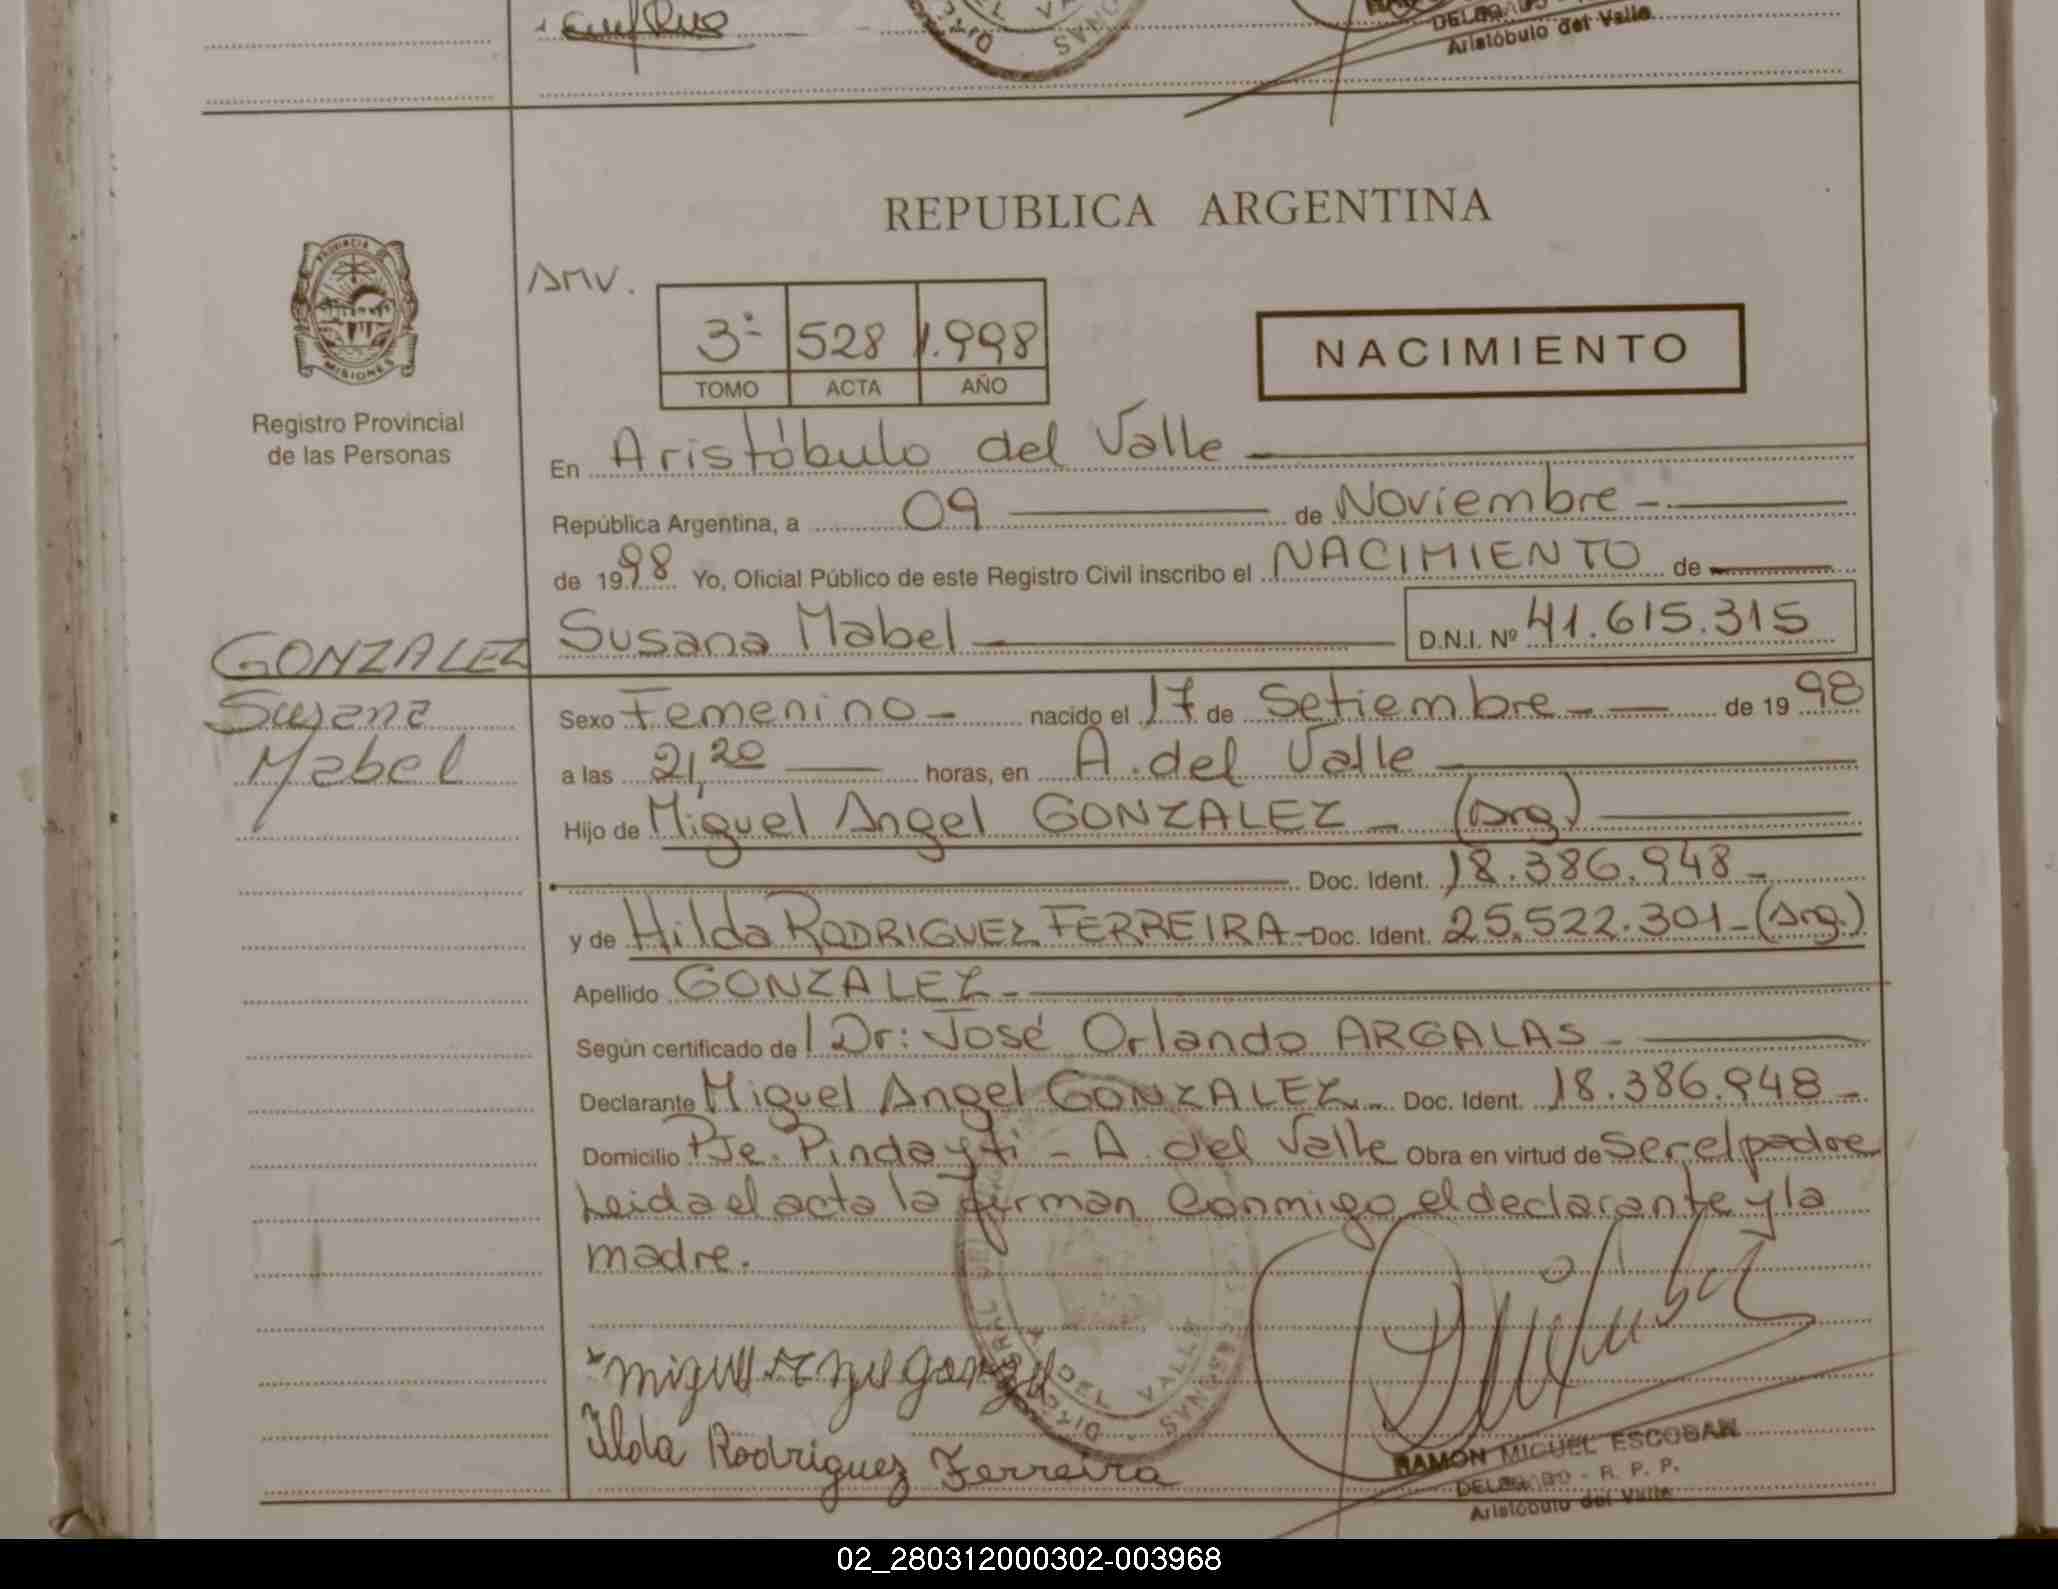 DELEGADO
Aristóbulo del Valle
REPUBLICA ARGENTINA
PROVINCIA DE
MISIONES
AMV.
3º 528 1.998
TOMO ACTA AÑO
NACIMIENTO
Registro Provincial
de las Personas
En Aristóbulo del Valle
República Argentina, a 09 de Noviembre
de 1998 Yo, Oficial Público de este Registro Civil inscribo el NACIMIENTO de
Susana Mabel D.N.I. Nº 41.615.315
GONZALEZ
Susana
Mabel
Sexo Femenino nacido el 17 de Setiembre de 1998
a las 21,20 horas, en A. del Valle
Hijo de Miguel Angel GONZALEZ (Arg.)
Doc. Ident. 18.386.948
y de Hilda RODRIGUEZ FERREIRA Doc. Ident. 25.522.301 (Arg.)
Apellido GONZALEZ
Según certificado de l Dr: José Orlando ARGALAS
Declarante Miguel Angel GONZALEZ Doc. Ident. 18.386.948
Domicilio Pje. Pindayti - A. del Valle Obra en virtud de ser el padre
Leida el acta la firman conmigo el declarante y la
madre.
Miguel Angel Gonzalez
Ilda Rodriguez Ferreira
A. DEL VALLE
RAMON MIGUEL ESCOBAR
DELEGADO - R. P. P.
Aristóbulo del Valle
02_280312000302-003968